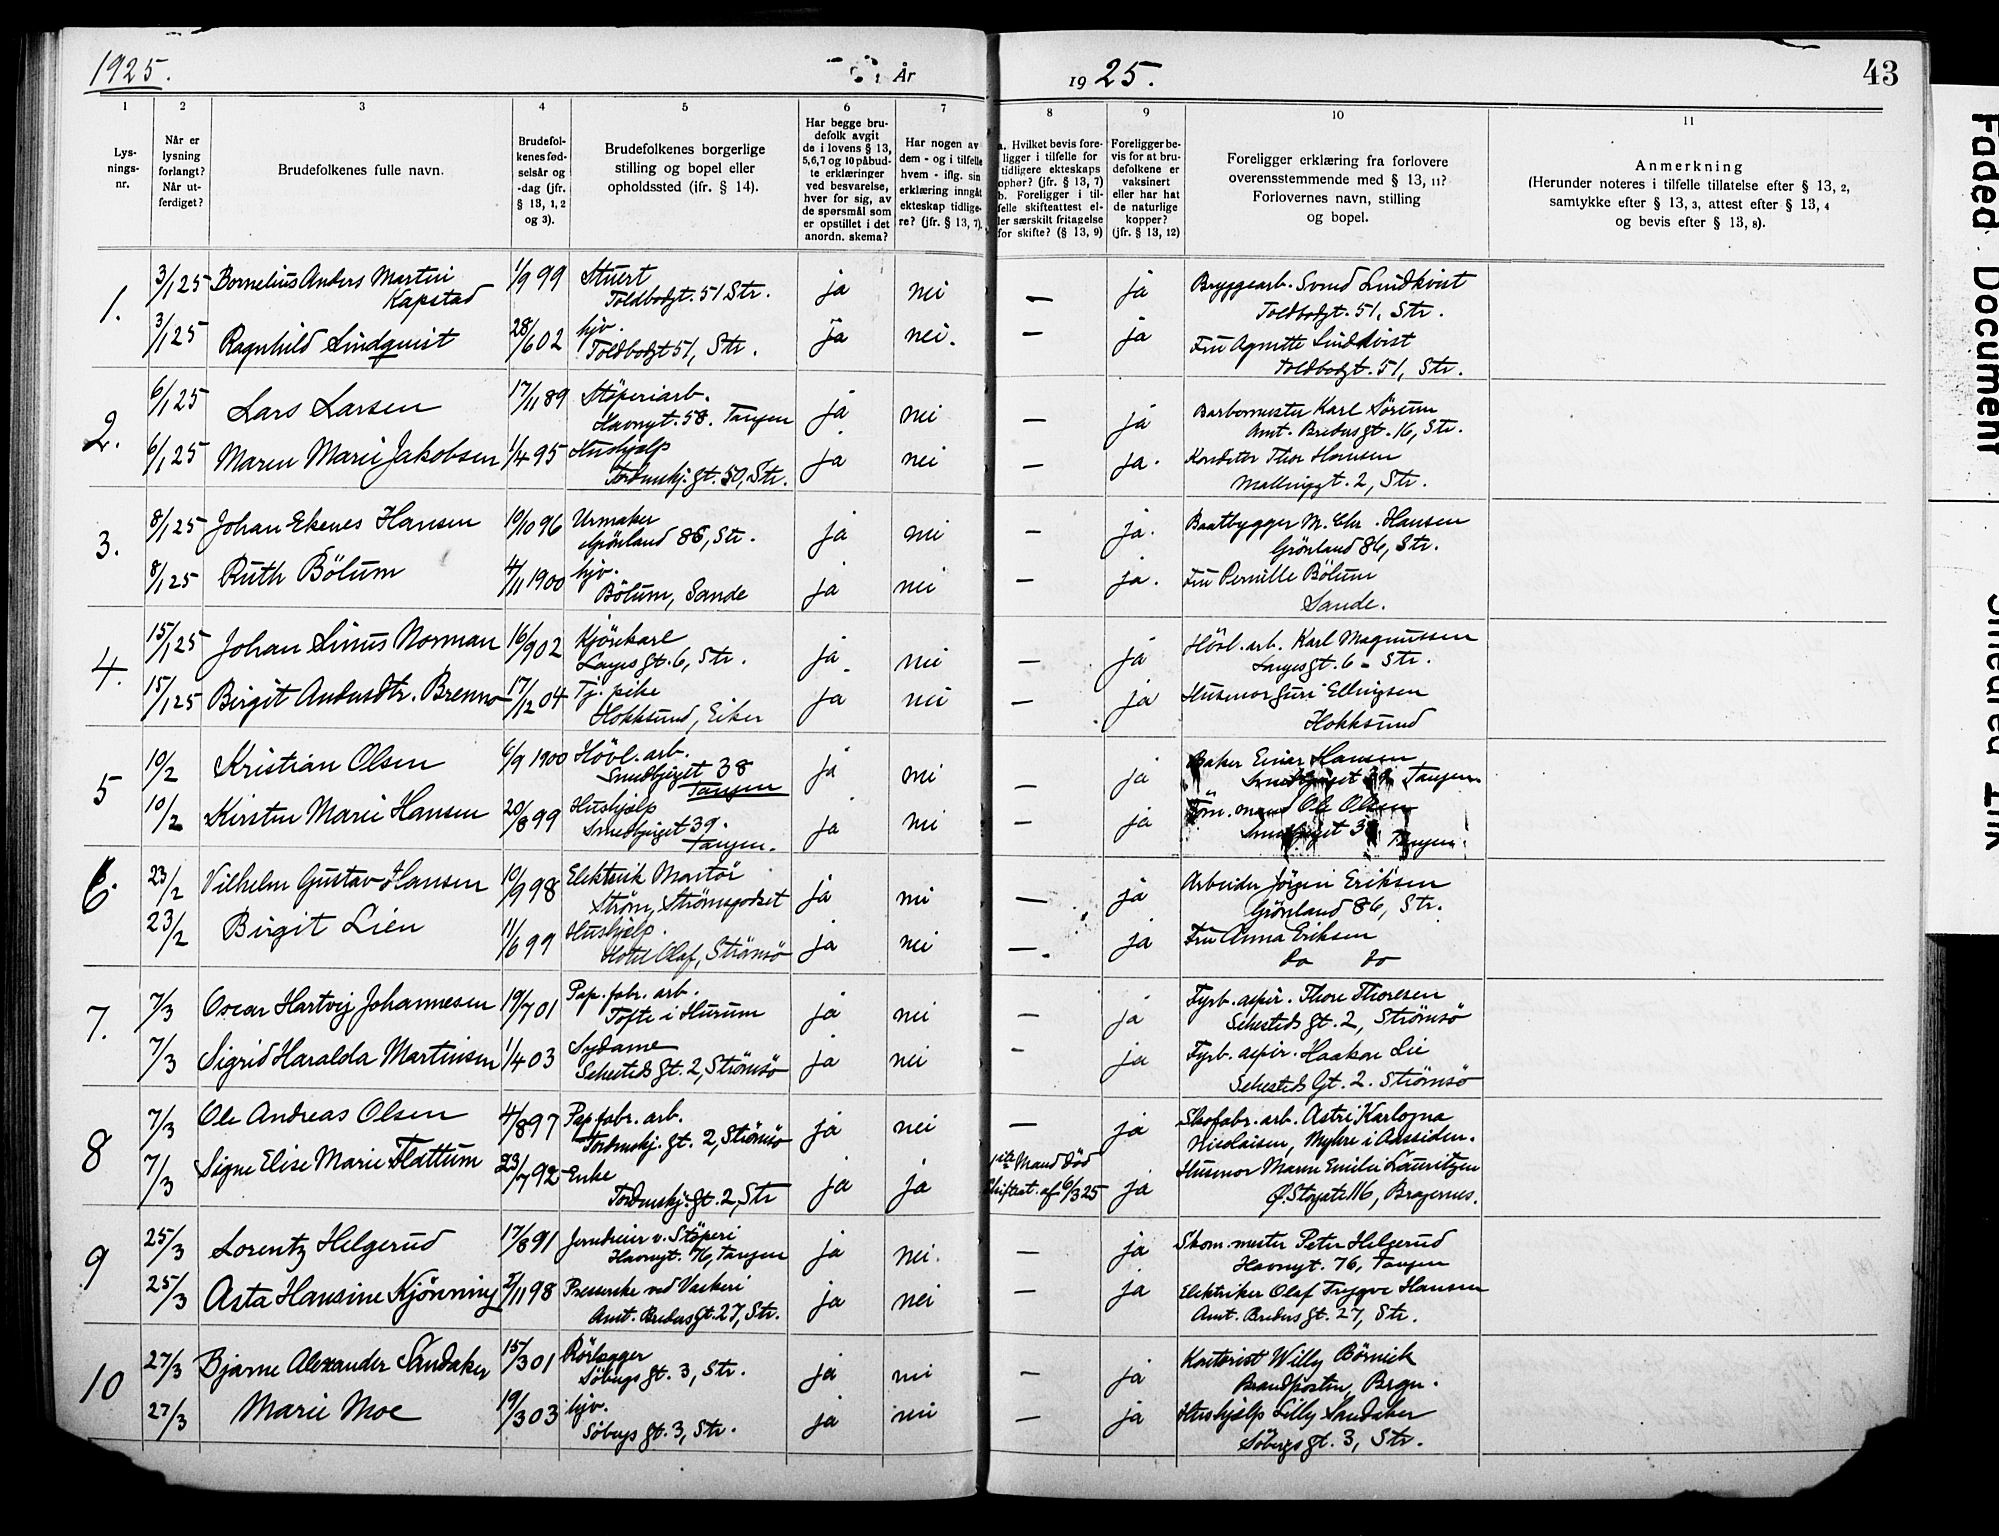 1925.
År
1925.
43
1
2
3
4
5
6
7
8
9
10
11
Lys-
nings-
nr.
Når er
lysning
forlangt?
Når ut-
ferdiget?
Brudefolkenes fulle navn.
Brudefol-
kenes fød-
selsår og
-dag (jfr.
§ 13, 1, 2
og 3).
Brudefolkenes borgerlige
stilling og bopel eller
opholdssted (ifr. § 14).
Har begge bru-
defolk avgit
de i lovens § 13,
5,6,7 og 10 påbud-
te erklæringer
ved besvarelse,
hver for sig, av
de spørsmål som
er opstillet i det
anordn. skema?
Har nogen av
dem - og i tilfelle
hvem - iflg. sin
erklæring inngått
ekteskap tidlige-
re? (jfr. § 13, 7).
a. Hvilket bevis fore-
ligger i tilfelle for
tidligere ekteskaps
ophør? (jfr. § 13, 7)
b. Foreligger i til-
felle skifteattest el-
ler særskilt fritagelse
for skifte? (§ 13, 9)
Foreligger be-
vis for at bru-
defolkene er
vaksinert
eller har hat
de naturlige
kopper?
(jfr. § 13, 12)
Foreligger erklæring fra forlovere
overensstemmende med § 13, 11?
Forlovernes navn, stilling
og bopel.
Anmerkning
(Herunder noteres i tilfelle tillatelse efter § 13, 2,
samtykke efter § 13, 3, attest efter § 13, 4
og bevis efter § 13, 8).
1. 3/1 25 Bornelius Anders Martin 1/9 99 Stuert ja nei — ja Bryggearb. Svend Lindkvist
Kapstad Toldbodgt. 51 Str. Toldbodgt. 51, Str.
3/1 25 Ragnhild Lindquist 28/6 02 hjv. ja nei. — ja Fru Agnette Lindkvist
Toldbodgt 51, Str. Toldbodgt. 51, Str.
2. 6/1 25 Lars Larsen 17/11 89 Støperiarb. ja nei — ja Barbermester Karl Sörum
Havngt. 58. Tangen Amt. Bredersgt. 16, Str.
6/1 25 Maren Marie Jakobsen 1/4 95 Hushjælp ja nei — ja. Konditor Thor Hansen
Tordenskj. gt. 50, Str. Mallinggt. 2, Str.
3. 8/1 25 Johan Ekenes Hansen 10/10 96 Urmaker ja nei — ja. Baatbygger M. Chr. Hansen
Grönland 86, Str. Grönland 86, Str.
8/1 25 Ruth Bölum 4/11 1900 hjv. ja nei — ja. Fru Pernille Bölum
Bölum, Sande Sande.
4. 15/1 25 Johan Linus Norman 16/9 02 Kjörekarl ja nei — ja Hövl. arb. Karl Magnussen
Langes gt. 6, Str. Langes gt. 6 - Str.
15/1 25 Birgit Andersdtr. Brenno 17/12 04 Tj. pike ja nei — ja Husmor Guri Ellingsen
Hokksund, Eiker Hokksund
5 10/2 Kristian Olsen 6/9 1900 Hövl. arb. ja nei — ja Baker Einar Hansen
Smedbjerget 38 Tangen Smedbjerget 39 Tangen
10/2 Kirsten Marie Hansen 20/8 99 Hushjælp ja nei — ja Töm. mand Ole Olsen
Smedbjerget 39. Tangen. Tangen.
6. 23/2 Vilhelm Gustav Hansen 10/9 98 Elektrisk Montör ja nei — ja Arbeider Jörgen Eriksen
Ström, Strömsgodset Grönland 86, Str.
23/2 Birgit Lien 11/6 99 Hushjelp. ja nei — ja Fru Anna Eriksen
Hotel Olaf, Strömsö do do
7. 7/3 Oscar Hartvig Johannesen 19/7 01 Pap. fabr. arb. ja nei — ja Fyrb. aspir. Thore Thoresen
Tofte i Hurum Sehesteds gt. 2, Strömsö
7/3 Sigrid Haralda Martinsen 1/4 03 Sydame ja nei - ja Fyrb. aspir. Haakon Lie
Sehesteds gt. 2, Strömsö Sehesteds Gt. 2. Strömsö
8 7/3 Ole Andreas Olsen 4/8 97 Pap. fabr. arb. ja nei — ja Skofabr. arb. Astri Karlogna
Tordenskj. gt. 2, Strömsö Nicolaisen, Myhre i Aassiden.
7/3 Signe Elise Marie Flattum 23/7 92 Enke ja ja 1ste Mand död ja Husmor Maren Emilie Lauritzen
Tordenskj. gt. 2, Str Skifteat. af 6/3 25 Ø. Storgate 116, Bragernes.
9 25/3 Lorentz Helgerud 17/8 91 Jerndreier v. Støperi ja nei. — ja Skom. mester Peter Helgerud
Havngt. 76, Tangen Havngt. 76, Tangen
25/3 Asta Hansine Kjönning 5/11 98 Presserske ved Vaskeri ja nei — ja Elektriker Olaf Tryggve Hansen
Amt. Breders gt. 27, Str. Amt. Breders gt. 27, Str.
10 27/3 Bjarne Alexander Sandaker 15/3 01 Rörlegger ja nei — ja Kontorist Willy Börnick
Söbergs gt. 3, Str. Brandposten, Brgn.
27/3 Marie Moe 19/3 03 hjv. ja nei — ja Hushjælp Lilly Sandaker
Söbergs gt. 3, Str. Söbergs gt. 3, Str.
Faded Document
Smeared Ink